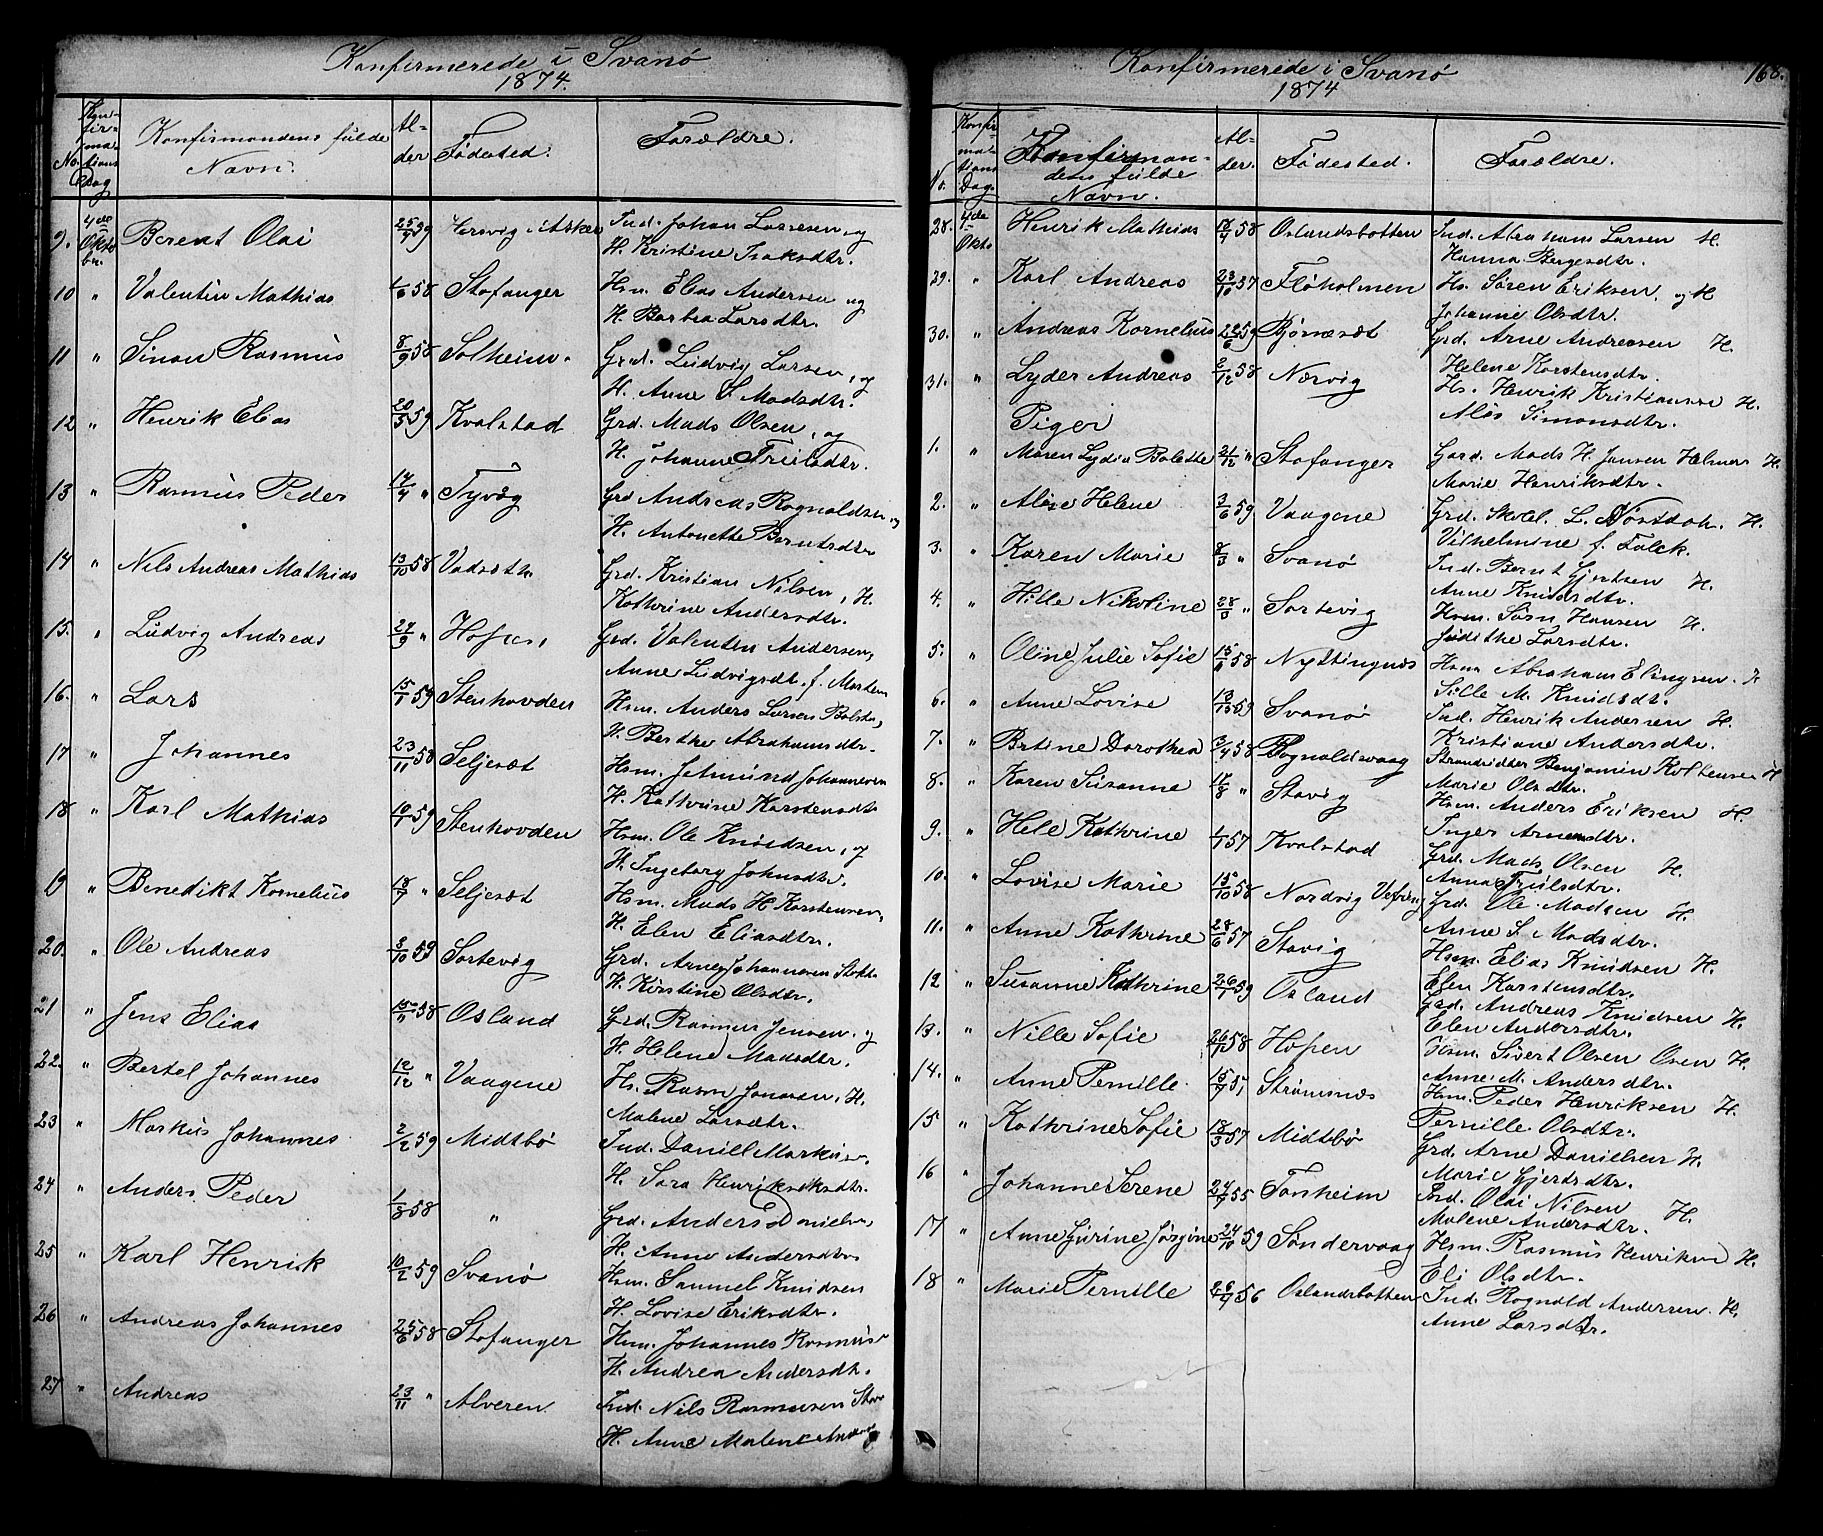 Konfirmerede i Svanø
1874.
No. Konfirmations Dag
Konfirmandens fulde Navn.
Alder
Fødested.
Forældre.
9. 4de Oktober. Berent Olai 25/7 59 Hersvig i Askev. Ind. Johan Lassesen og
H. Kristine Isaksdtr.
10 " Valentin Mathias 4/6 58 Stofanger Hsm. Elias Andersen og
H. Barbra Larsdtr.
11 " Simon Rasmus 8/9 58 Solheim. Grd. Ludvig Larsen, og
H. Anne S. Madsdtr.
12 " Henrik Elias 20/5 59 Kvalstad Grd. Mads Olsen, og
H. Johanne Truilsdtr.
13 " Rasmus Peder 17/4 " Tyvæg Grd Andreas Rognaldsen og
H. Antonette Berntsdtr
14 " Nils Andreas Mathias 13/10 58 Vadseth. Grd. Kristian Nilsen, H.
Kathrine Andersdtr.
15. " Ludvig Andreas 27/9 " Grd. Valentin Andersen,
Anne Ludvigsdt. f.
16. " Lars 15/1 59 Stenhovden Hsm. Anders Larsen
H. Berthe Abrahamsdtr.
17 " Johannes 23/11 58 Seljesæt Hsm. Jetmund Johannesen
H. Kathrine Karstensdtr
18 " Karl Mathias 19/1 59 Stenhovden Hsm. Ole Knudsen, og
H. Ingeborg Johnsdtr.
19 " Benedikt Kornelius 18/7 " Seljesæt Hsm. Mads H Karstensen,
H. Elen Eliasdtr.
20. " Ole Andreas 8/10 59 Sortevig Grd. Arne Johannesen
H. Kirstine Olsdtr.
21 " Jens Elias 15/11 58 Osland Grd. Rasmus Jensen og
H. Helene Madsdtr.
22. " Bertel Johannes 12/12 " Vaagene Hs. Rasm Jonasen, H.
Malene Larsdtr.
23 " Markus Johannes 2/2 59 Midtbø Ind. Daniel
H. Sara Henriksdtr.
24 " Anders Peder 1/8 58 " Grd. Anders Danielsen
H. Anne Andersdtr
25 " Karl Henrik 10/2 59 Svanø Hsm. Samuel Knudsen
H. Lovise Eriksdtr.
26 " Andreas Johannes 25/6 58 Stofanger Hsm. Johannes Rasmuss
H. Andrea Andersdtr.
27 " Andreas 23/11 " Alveren Ind. Nils Rasmussen
H. Anne Malene
Konfirmerede i Svanø 168.
1874
No. Konfirmations Dag.
Konfirmandens fulde Navn.
Alder.
Fødestad.
Forældre.
28. 4de Oktb Henrik Mathias 18/4 58 Oslandsbotten Ind. Abraham Larsen H.
Hanna Børgesdtr.
29. " Karl Andreas 23/10 57 Fløholmen Hs. Søren Eriksen og H
Johanne Olsdtr.
30. " Andreas Kornelius 22/6 59 Bjørnesæt Grd. Arne Andreasen H.
Helene Karstensdtr.
31. " Lyder Andreas 2/12 58 Nærvig Hs. Henrik Kristiansen H.
Alis Simonsdtr.
Piger
1. " Maren Lydia Bolette 21/12 " Stofanger Gard. Mads H. Jansen Helmers H.
Marie Henriksdtr.
2. " Alise Helene 3/6 59 Vaagene Grd. Skoel. L. H.
Vilhelmine f. Falck.
3. " Karen Marie 8/3 " Svanø Ind. Bernt Gjertsen H.
Anne Knudsdtr.
4. " Hille Nikoline 28/8 " Sortevig Hsm. Sørn Hansen H.
Judithe Larsdtr.
5. " Oline Julie Sofie 15/6 58 Nyttingnes Hsm Abraham Elingsen. H
Sille M. Knudsdt.
6. " Anne Lovise 13/10 59 Svanø Ind. Henrik Andersen H.
Kristiane Andersdtr.
7. " Bertine Dorothea 3/4 58 Rognaldsvaag Strandsidder Benjamin H
Marie Olsdtr.
8. " Karen Susanne 17/8 " Stavig Hsm. Anders Eriksen H.
Inger Arnesdtr.
9. " Hele Kathrine 4/1 57 Kvalstad Grd. Mads Olsen H.
Anna Truilsdtr.
10. " Lovise Marie 15/10 58 Nordvig Vefring Grd Ole Madsen H.
Anne S. Madsdtr.
11. " Anne Kathrine 28/6 57 Stavig Hsm. Elias Knudsen H.
Elen Karstensdtr.
12 " Susanne Kathrine 26/1 59 Osland Grd. Andreas Knudsen H.
Elen Andersdtr.
13. " Nille Sofie 26/1 58 Hopen Hsm. Sivert Olsen Osen H
Anne M. Andersdtr.
14. " Anne Pernille. 15/7 57 Strømsnæs Hsm. Peder Henriksen H
Pernille Olsdtr.
15 " Kathrine Sofie 18/3 57 Midtbø Grd. Arne Danielsen H.
Marie Gjertsdtr.
16 " Johanne Serene 24/7 55 Tonheim Ind. Olai Nilsen H.
Malene Andersdtr.
17 " Anne Gurine Jørgine 24/10 59 Søndervaag Hsm. Rasmus Henriksen H.
Eli Olsdtr.
18 " Marie Pernille 26/4 56 Oslandsbotten Ind. Rognald Andersen H.
Anne Larsdtr.